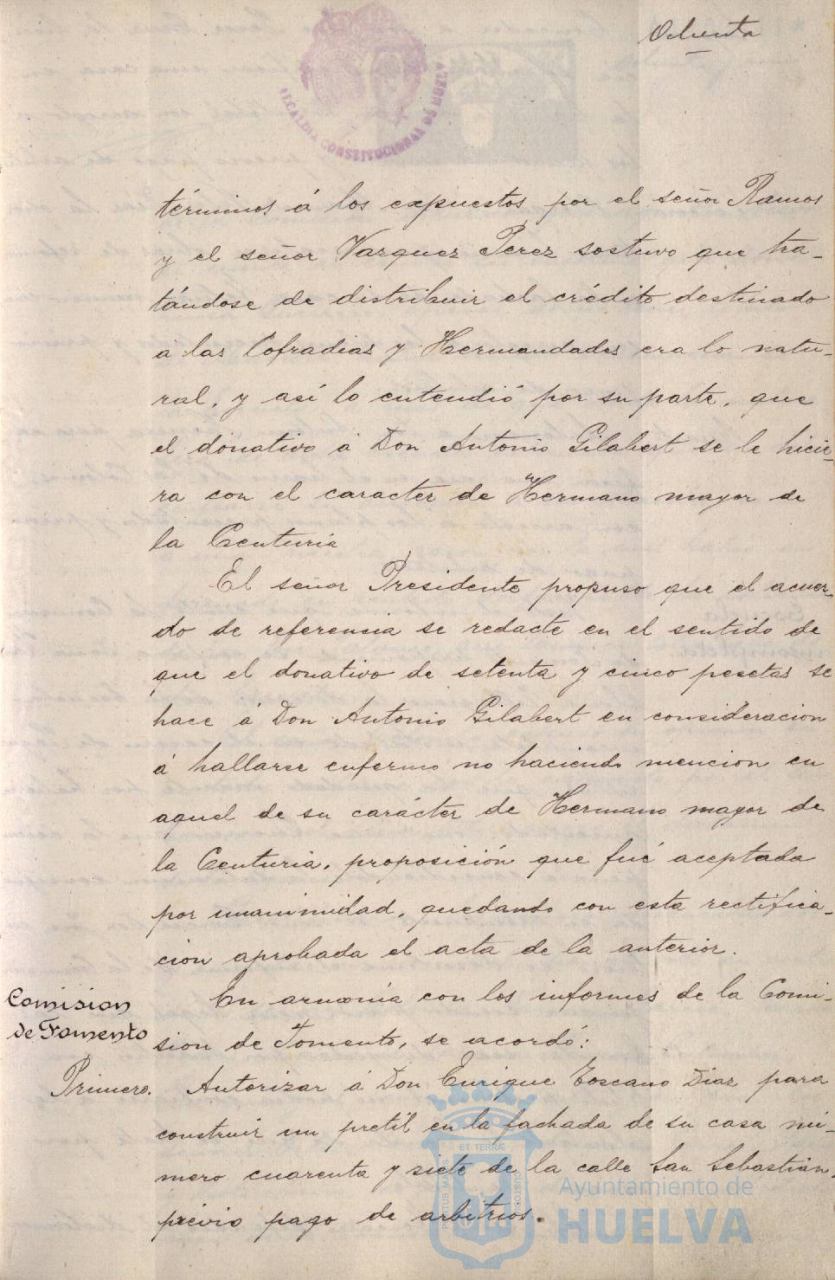 Ochenta
ALCALDIA CONSTITUCIONAL DE HUELVA
términos á los expuestos por el señor Ramos
y el señor Vazquez Perez sostuvo que tra-
tándose de distribuir el crédito destinado
a las Cofradias y Hermandades era lo natu-
ral, y así lo entendió por su parte, que
el donativo á Don Antonio Gilabert se le hicie-
ra con el caracter de Hermano mayor de
la Centuria
El señor Presidente propuso que el acuer-
do de referencia se redacte en el sentido de
que el donativo de setenta y cinco pesetas se
hace á Don Antonio Gilabert en consideracion
á hallarse enfermo no haciendo mencion en
aquel de su carácter de Hermano mayor de
la Centuria, proposición que fué aceptada
por unanimidad, quedando con esta rectifica-
cion aprobada el acta de la anterior.
Comision
de Fomento
En armonía con los informes de la Comi-
sion de Fomento, se acordó:
Primero. Autorizar á Don Enrique Toscano Diaz para
construir un pretil en la fachada de su casa nú-
mero cuarenta y siete de la calle San Sebastián
prévio pago de arbitrios.
Ayuntamiento de
HUELVA